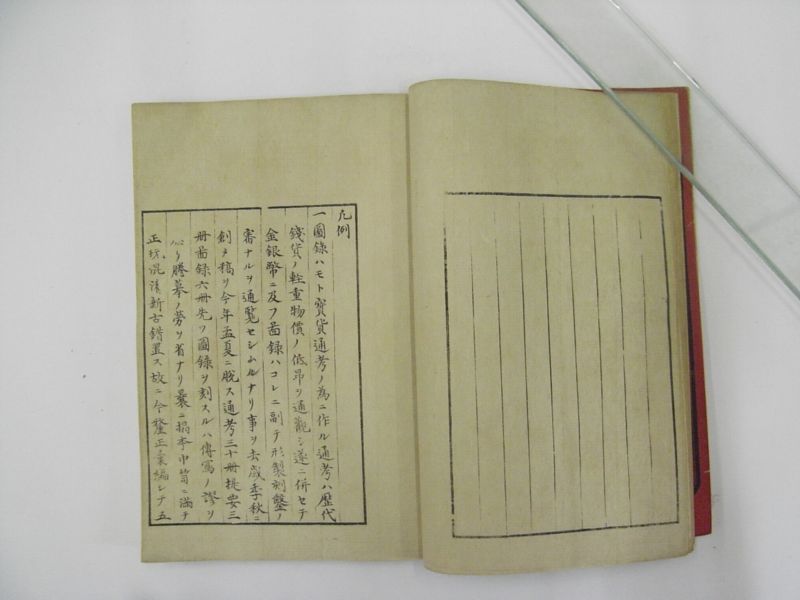 凡例
一圖錄ハモト寶貨通考ノ為ニ作ル通考ハ歷代
錢貨ノ輕重物價ノ低昂ヲ通觀シ遂ニ併セテ
金銀幣ニ及フ啚錄ハコレニ副テ形製刻鑿ノ
審ナルヲ通覧セシムルナリ事ヲ去歲季秋ニ
創メ稿リ今年孟夏ニ脫ス通考三十册提要三
册啚錄六册先ツ圖錄ヲ刻スルハ傳寫ノ謬ヲ
ノ勞ヲ省ナリ曩ニ搨本巾笥ニ滿テ
正混淆新古錯置ス故ニ今釐正彙編シテ五